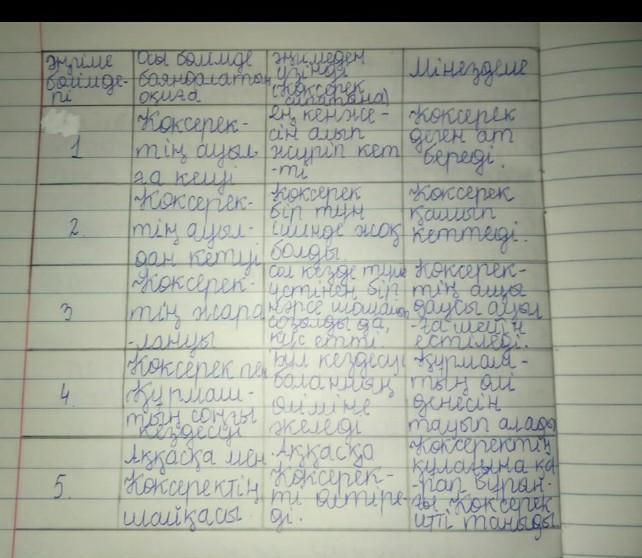 Әңгіме бөлімде-рі
Осы бөлімде баяндалатын оқиға
Әңгімеден үзінді (Көксерек сипатына)
Мінездеме
1
Көксерек-
тің ауыл
ға келуі
ең кенже-
сін алып
жүріп кет
-ті
Көксерек
деген ат
береді.
2.
Көксерек-
тің ауыл-
дан кетуі
Көксерек
бір түн
ішінде жоқ
болды
Көксерек
қашып
кеттеді.
3
Көксерек-
тің жара
-лануы
сол кезде
үстінен бір
нәрсе
да,
етті.
Көксерек-
тің ащы
даусы ауыл
-ға шейін
естіледі.
4.
Көксерек пен
Құрмаш-
тың соңғы
кездесуі
Бұл кездесу
баланның
өліміне
әкеледі
Құрмаш-
тың өлі
денесін
тауып алады
5.
Аққасқа мен
Көксеректің
шайқасы.
Аққасқа
Көксерек-
ті өлтіре-
ді.
Көксеректің
құлағына қа
-рап бұрын-
ғы Көксерек
итті таныды